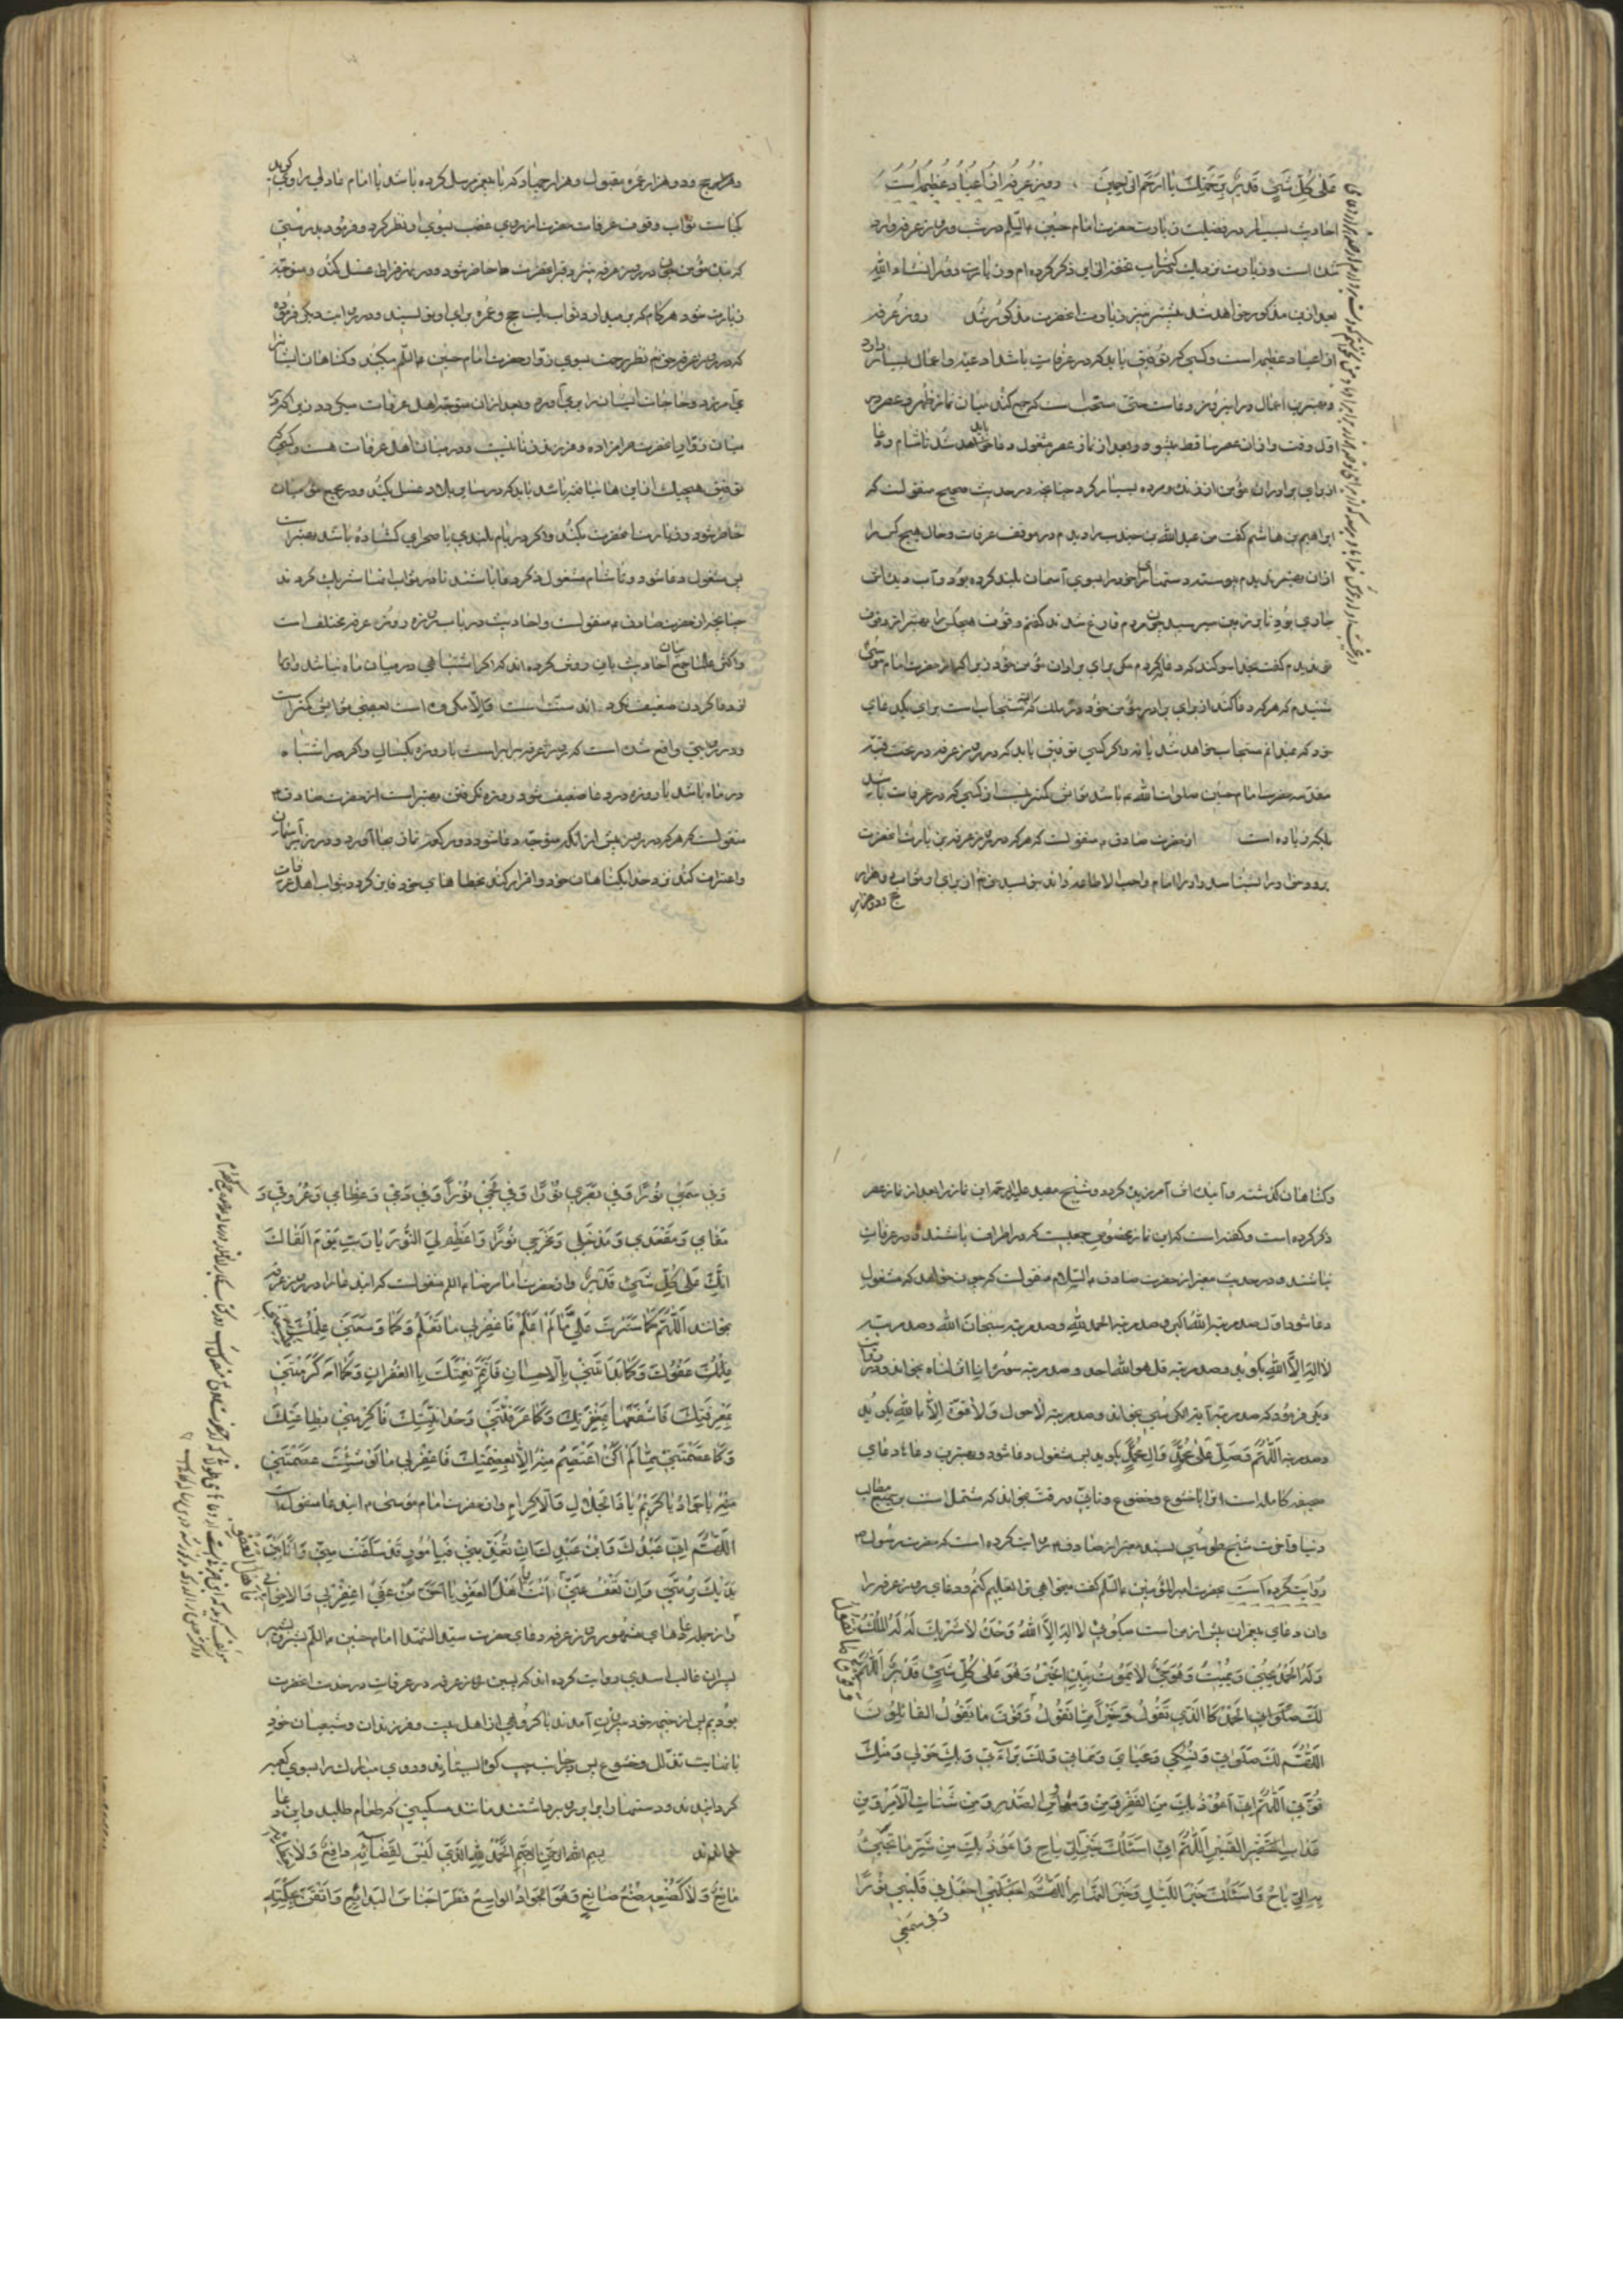 عَلیٰ کُلِّ شَیْءٍ قَدیرٌ بِرَحْمَتِکَ یا اَرْحَمَ الرّاحِمینَ روز عرفه از اعیاد عظیم است
احادیث بسیار در فضیلت زیارت حضرت امام حسین علیه السلم در شب و روز عرفه وارد
شده است و زیارت نزدیک را در کتاب تحفة الزایر ذکر کرده ام و زیارت دور انشاء الله
بعد ازین مذکور خواهد شد پیشتر نیز زیارت آنحضرت مذکور شد روز عرفه
از اعیاد عظیمه است و کسی که توفیق یابد که در عرفات باشد ادعیه و اعمال بسیار دارد
و بهترین اعمال در این روز دعاست حتی مستحب است که جمع کند میان نماز ظهر و عصر در
اول وقت و اذان عصر ساقط میشود و بعد از نماز عصر مشغول دعا باید شد تا شام و دعا
از برای برادران مؤمن از زنده و مرده بسیار کرد چنانچه در حدیث صحیح منقولست که
ابراهیم بن هاشم گفت من عبدالله بن جندب را دیدم در موقف عرفات و حال هیچ کس را
از آن بهتر ندیدم پیوسته دستهای خود را بسوی آسمان بلند کرده بود و آب دیده اش
جاری بود تا بزمین میرسید چون مردم فارغ شدند گفتم وقوف هیچکس را بهتر از وقوف
تو ندیدم گفت بخدا سوگند که دعا نکردم مگر برای برادران مؤمن خود زیرا که از حضرت امام موسی
شنیدم که هر که دعا کند از برای برادر مؤمن خود
خود که نمیدانم مستجاب خواهد شد یا نه و اگر کسی توفیق یابد که در روز عرفه در تحت قبه
مقدسه حضرت امام حسین صلوات الله علیه باشد ثوابش کمتر نیست از کسی که در عرفات باشد
بلکه زیاده است از حضرت صادق ع منقولست که هر که در روز عرفه بزیارت آنحضرت
برود و حق او را بشناسد و او را امام واجب الاطاعه داند بنویسد حق تعالی از برای او ثواب هزار
حج و دو هزار
و هزار حج و دو هزار عمره مقبول و هزار جهاد که با پیغمبر مرسل کرده باشد یا امام عادلی راوی گوید
کجاست ثواب وقوف عرفات حضرت از روی غضب بسوی او نظر کرد و فرمود بدرستی
که چون مؤمن در روز عرفه بنزد قبر آنحضرت حاضر شود و در نهر فرات غسل کند و متوجه
زیارت شود هر گام که بر میدارد ثواب یک حج و عمره برای او بنویسند و در روایت دیگر فرمود
که در روز عرفه حق تعالی نظر رحمت بسوی زوار حضرت امام حسین علیه السلم میکند و گناهان ایشانرا
می آمرزد و حاجات ایشان را بر می آورد و بعد از آن متوجه اهل عرفات میگردد زیرا که در
میان زوار آنحضرت حرامزاده و فرزند زنا نیست و در میان اهل عرفات هست و کسی که
توفیق هیچیک از این ها نیافته باشد باید که در سایر بلاد غسل بکند و در مجمع مؤمنان
حاضر شود و زیارت آنحضرت بکند و اگر در بام بلندی یا صحرای گشاده باشد بهتر است
پس مشغول دعا شود و تا شام مشغول ذکر و دعا باشند تا در ثواب آنها شریک گردند
چنانچه از حضرت صادق ع منقولست و احادیث در باب روزه روز عرفه مختلف است
و اکثر علما جمع میان احادیث باین روش کرده اند که اگر اشتباهی در میان ماه نباشد و او را
از دعا کردن ضعیف نکند سنت است و الا مکروه است بمعنی ثوابش کمتر است
و در روایتی واقع شده است که روزه عرفه برابر است با روزه یکسال و اگر هم اشتباه
در ماه باشد یا روزه در دعا ضعیف شود روزه نگرفتن بهتر است از حضرت صادق ع
منقولست که هر که در روز عرفه پیش از آنکه متوجه دعا شود دو رکعت نماز بجا آورد در زیر آسمان
و اعتراف کند نزد خدا بگناهان خود و اقرار کند بخطاهای خود فایز گردد بثواب اهل عرفات
و گناهان گذشته و آینده اش آمرزیده گردد و شیخ مفید علیه الرحمه این نماز را بعد از نماز عصر
ذکر کرده است و گفته است که این نماز مخصوص جمعیست که در اطراف باشند و در عرفات
نباشند و در حدیث معتبر از حضرت صادق علیه السلام منقولست که چون خواهد که مشغول
دعا شود اول صد مرتبه الله اکبر و صد مرتبه الحمد لله و صد مرتبه سبحان الله و صد مرتبه
لا اله الا الله بگوید و صد مرتبه قل هو الله احد و صد مرتبه سوره انا انزلناه بخواند و در روایت
دیگر فرمود که صد مرتبه آیة الکرسی بخواند و صد مرتبه لا حول و لا قوة الا بالله بگوید
و صد مرتبه اللّهُمَّ صَلِّ عَلیٰ مُحَمَّدٍ وَآلِ مُحَمَّدٍ بگوید پس مشغول دعا شود و بهترین دعاها دعای
صحیفه کامله است باید با خشوع و خضوع و تأنی و رقت بخواند که مشتمل است بر جمیع مطالب
دنیا و آخرت شیخ طوسی بسند معتبر از صادق ع روایت کرده است که حضرت رسول ص
روایت کرده است بحضرت امیرالمؤمنین علیه السلم گفت میخواهی ترا تعلیم کنم دعای روز عرفه را
و آن دعای پیغمبران پیش از من است میگوئی لا اِلهَ اِلاَّ اللهُ وَحْدَهُ لا شَریکَ لَهُ لَهُ الْمُلْکُ
وَلَهُ الْحَمْدُ یُحْیی وَیُمیتُ وَهُوَ حَیٌّ لا یَمُوتُ بِیَدِهِ الْخَیْرُ وَهُوَ عَلیٰ کُلِّ شَیْءٍ قَدیرٌ اَللّهُمَّ
لَکَ الْحَمْدُ کَالَّذی تَقُولُ وَخَیْراً مِمّا نَقُولُ وَفَوْقَ ما یَقُولُ الْقائِلُونَ
اَللّهُمَّ لَکَ صَلَوٰتی وَنُسُکی وَمَحْیایَ وَمَماتی وَلَکَ بَراءَتی وَبِکَ حَوْلی وَمِنْکَ
قُوَّتی اَللّهُمَّ اِنّی اَعُوذُ بِکَ مِنَ الْفَقْرِ وَمِنْ وَسْواسِ الصَّدْرِ وَمِنْ شَتاتِ الْاَمْرِ وَمِنْ
عَذابِ الْقَبْرِ اَللّهُمَّ اِنّی اَسْئَلُکَ خَیْرَ الرِّیاحِ وَاَعُوذُ بِکَ مِنْ شَرِّ ما تَجِیْءُ
بِهِ الرِّیاحُ وَاَسْئَلُکَ خَیْرَ اللَّیْلِ وَخَیْرَ النَّهارِ اَللّهُمَّ اجْعَلْ فی قَلْبی نُوراً
وَفی سَمْعی
وَفی سَمْعی نُوراً وَفی بَصَری نُوراً وَفی لَحْمی نُوراً وَفی دَمی وَعِظامی وَعُرُوقی وَ
مَقامی وَمَقْعَدی وَمَدْخَلی وَمَخْرَجی نُوراً وَاَعْظِمْ لِیَ النُّورَ یا رَبِّ یَوْمَ اَلْقاکَ
اِنَّکَ عَلیٰ کُلِّ شَیْءٍ قَدیرٌ و از حضرت امام رضا علیه السلم منقولست که این دعا را در روز عرفه
بخوانند اَللّهُمَّ کَما سَتَرْتَ عَلَیَّ ما لَمْ اَعْلَمْ فَاغْفِرْلی ما تَعْلَمُ وَکَما وَسِعَنی عِلْمُکَ فَلْیَسَعْنی
عَفْوُکَ وَکَما بَدَأْتَنی بِالْاِحْسانِ فَاَتِمَّ نِعْمَتَکَ بِالْغُفْرانِ وَکَما اَکْرَمْتَنی
بِمَعْرِفَتِکَ فَاشْفَعْها بِمَغْفِرَتِکَ وَکَما عَرَّفْتَنی وَحْدانِیَّتَکَ فَاَکْرِمْنی بِطاعَتِکَ
وَکَما عَصَمْتَنی مِمّا لَمْ اَکُنْ اَعْتَصِمُ مِنْهُ اِلاّ بِعِصْمَتِکَ فَاغْفِرْلی ما لَوْ شِئْتَ عَصَمْتَنی
مِنْهُ یا جَوادُ یا کَریمُ یا ذَا الْجَلالِ وَالْاِکْرامِ و از حضرت امام موسی ع این دعا منقولست
اَللّهُمَّ اِنّی عَبْدُکَ وَابْنُ عَبْدِکَ اِنْ تُعَذِّبْنی فَبِاُمُورٍ قَدْ سَلَفَتْ مِنّی وَاَنَا بَیْنَ
یَدَیْکَ وَاِنْ تَعْفُ عَنّی فَاَنْتَ اَهْلُ الْعَفْوِ یا اَحَقَّ مَنْ عَفیٰ اغْفِرْلی وَلِاِخْوانی
و از جمله دعاهای مشهور روز عرفه دعای حضرت سید الشهدا امام حسین علیه السلم بشر و بشیر
پسران غالب اسدی روایت کرده اند که پسین روز عرفه در عرفات در خدمت آنحضرت
بودیم پس از خیمه خود بیرون آمدند با گروهی از اهل بیت و فرزندان و شیعیان خود
با نهایت تذلل و خشوع پس در جانب چپ کوه ایستادند و روی مبارک را بسوی کعبه
گردانیدند و دستها را برابر رو برداشتند مانند مسکینی که طعام طلبد و این دعا
خواندند بسم الله الرحمن الرحیم اَلْحَمْدُ لِلّهِ الَّذی لَیْسَ لِقَضائِهِ دافِعٌ وَلا لِعَطائِهِ
مانِعٌ وَلا کَصُنْعِهِ صُنْعُ صانِعٍ وَهُوَ الْجَوادُ الْواسِعُ فَطَرَ اَجْناسَ الْبَدائِعِ وَاَتْقَنَ بِحِکْمَتِهِ